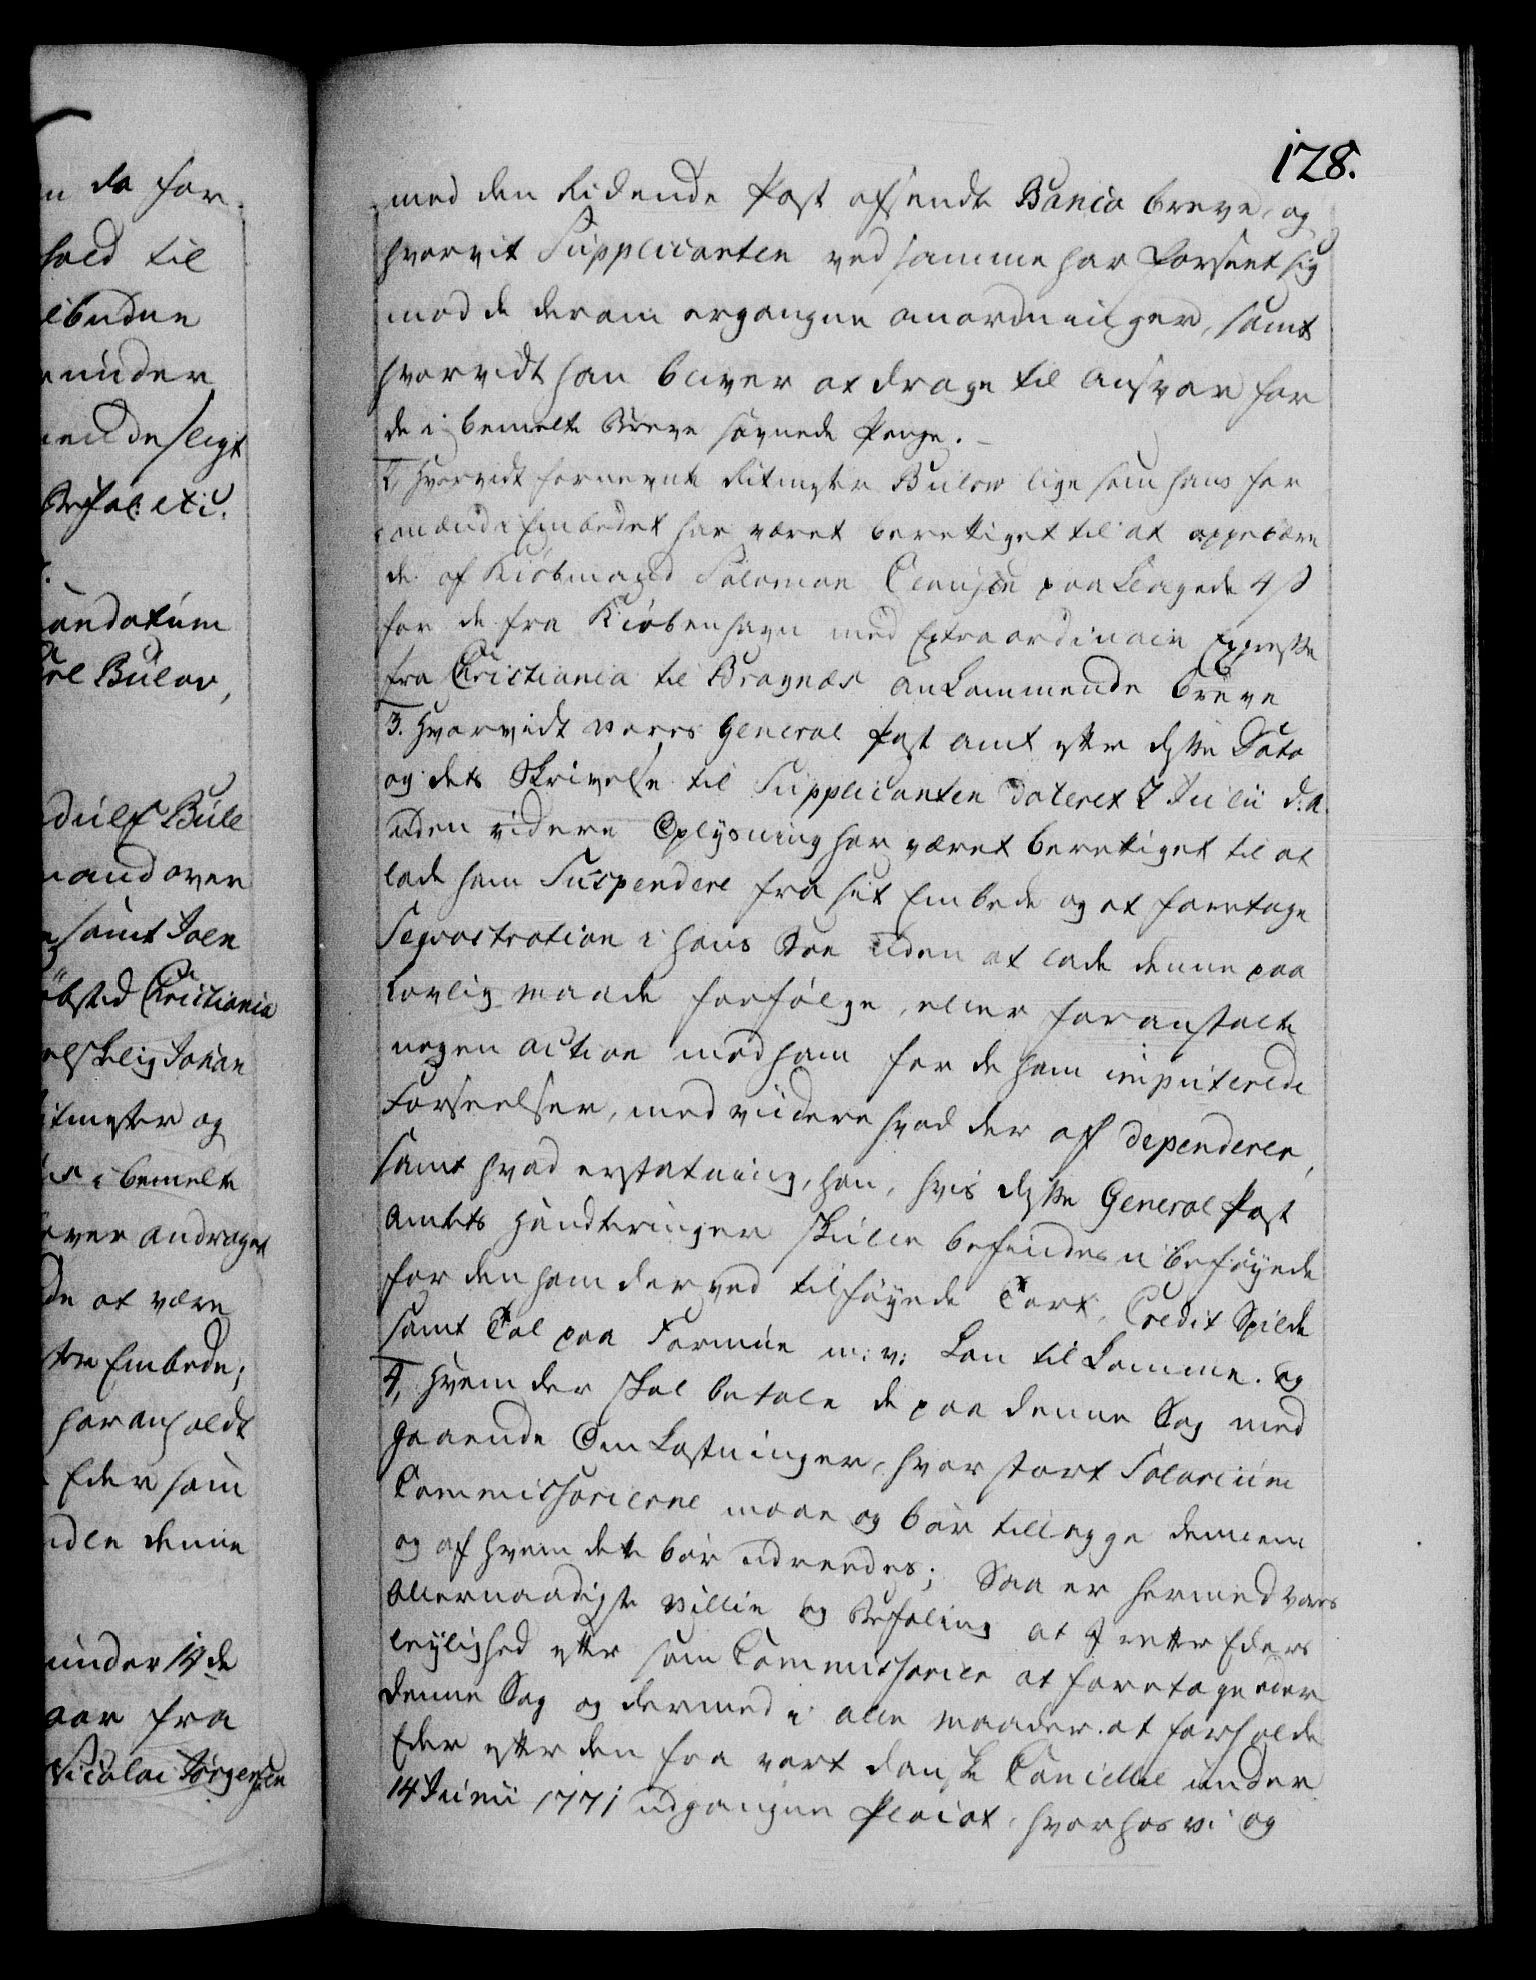 128.
med den Ridende Post afsendte Banco breve, og
hvorvit Supplicanten ved samme har forseet sig
mod de derom ergangne anordninger, samt
hvorvidt han bliver at drage til ansvar for
de i bemelte Breve savnede Penge. –
2, Hvorvidt fornevnte Ritmester Bulow lige som hans for
mænd i Embedet har været berettiget til at oppebære
de af Kiöbmand Salomon Clausen paa Klagede 4 ß
for de fra Kiöbenhavn med Extraordinair Expresse
fra Christiania til Bragnæs ankommende breve
3. Hvorvidt vores General Post amt efter dette Data
og dets Skrivelse til Supplicanten dateret 7 Julii d: a.
uden videre Oplysning har været berettiget til at
lade ham Suspendere fra sit Embede og at foretage
Seqvestration i hans Boe uden at lade denne paa
Lovlig maade forfölge, eller foranstalte
nogen action mod ham for de ham imputerede
Forseelser, med viidere hvad der af dependerer,
samt hvad erstatning, han, hvis dette General Post
Amtets Handteringer skulle befindes ubeföyede
for den ham derved tilföyede Tort, Credit Spilde
samt Tal paa Formue m: v: kan tilkomme. og
4, Hvem der skal betale de paa denne Sag med
gaaende Omkostninger, hvor stort Salarium
Commissarierne maae og bör tillegge dennem
og af hvem dette bör udreedes; Saa er hermed vores
allernaadigste villie og Befaling at I retter Eders
leylighed efter som Commissarier at foretage eder
denne Sag og dermed i alle maader at forholde
Eder efter den fra vort danske Cancellie under
14 Junii 1771 udgangne Placat, hvorhos vi og